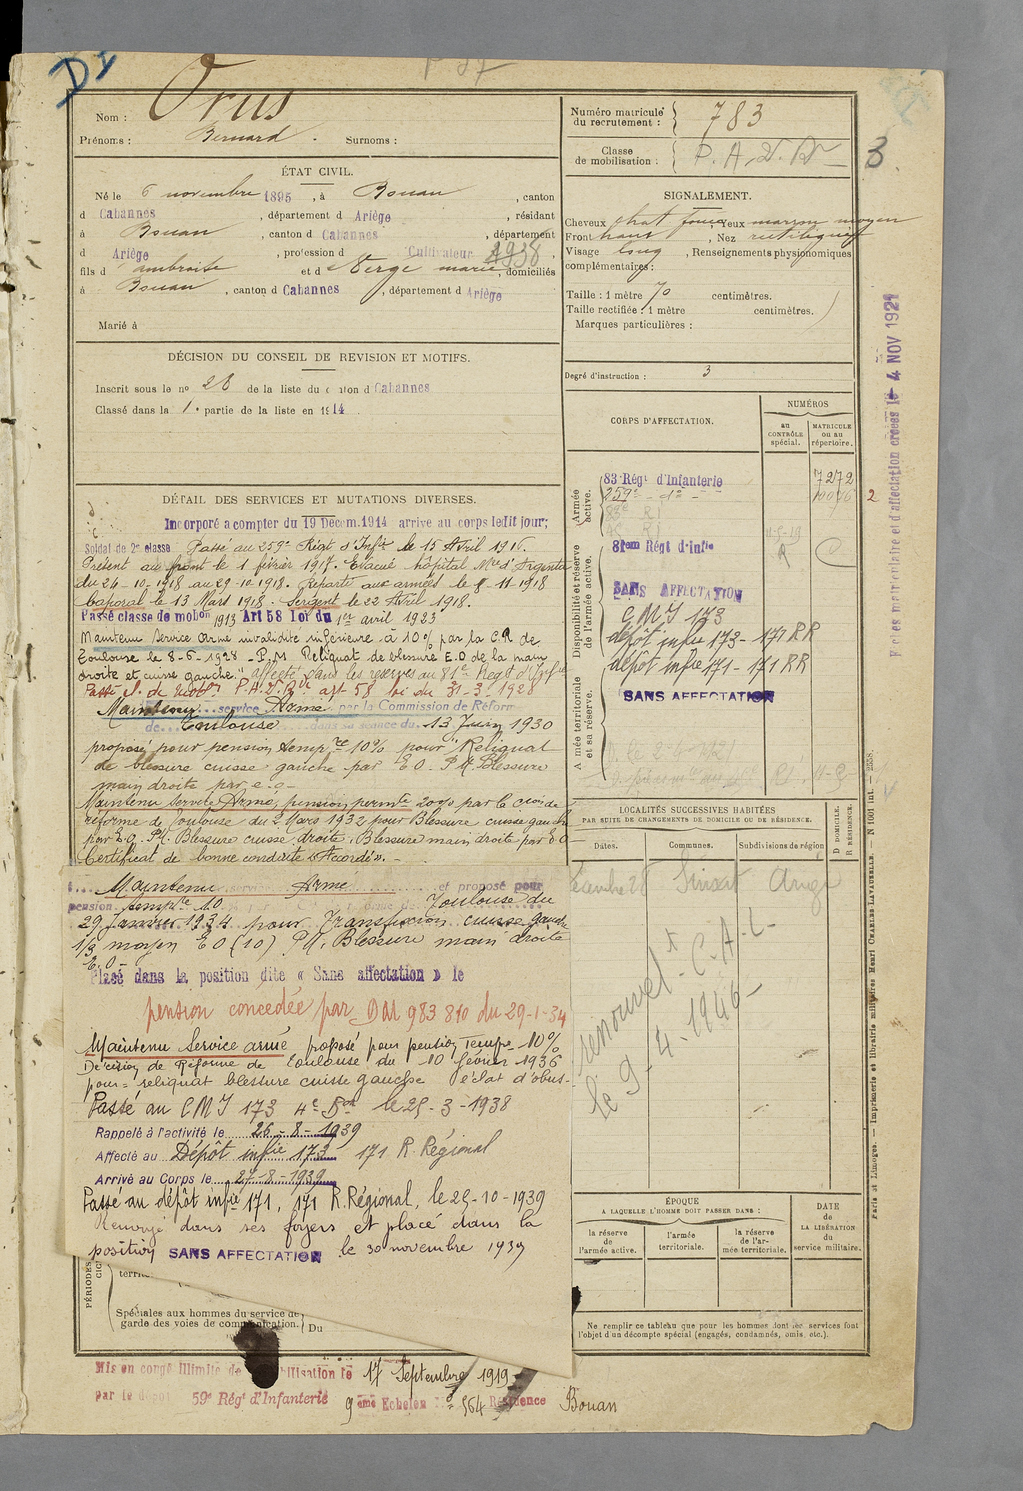 D
Nom : Orus
Prénoms : Bernard . Surnoms :
ÉTAT CIVIL.
Né le 6 novembre 1895, à Bouan, canton
d Cabannes, département d Ariège, résidant
à Bouan, canton d Cabannes, département
d Ariège, profession d Cultivateur 1938,
fils d ambroise et d Verge marie, domiciliés
à Bouan, canton d Cabannes, département d Ariège
Marié à
DÉCISION DU CONSEIL DE REVISION ET MOTIFS.
Inscrit sous le no 28 de la liste du c nton d Cabannes
Classé dans la 1. partie de la liste en 1914.
DÉTAIL DES SERVICES ET MUTATIONS DIVERSES.
Incorporé a compter du 19 Decem.1914 arrive au corps ledit jour;
Soldat de 2e classe Passé au 259e Régt d'Infie le 15 Avril 1916.
Présent au front le 1 février 1917. Evacué hôpital d'Argenta
du 24-10-1918 au 29-10-1918. Reparti aux armées le 8-11-1918
Caporal le 13 Mars 1918. Sergent le 22 Avril 1918.
Passé classe de mobon 1913 Art 58 loi du 1er avril 1923
Maintenu service armé invalidité inférieure à 10% par la C.R de
Toulouse le 8-6-1928 - P.M Reliquat de blessure E.O de la main
droite et cuisse gauche." affecté dans les réserves au 81e Regt d'Infie
Passé P.A.D.R art 58 loi du 31-3-1928
Maintenu service Armé par la Commission de Réform
de Toulouse dans sa séance du 13 Juin 1930
proposé pour pension tempre 10% pour "Reliquat
de blessure cuisse gauche par E O. P.M. Blessure
main droite par e.o-
Maintenu service Armé, pension permte 20% par la Cion de
réforme de Toulouse du 2 Mars 1932 pour Blessure cuisse gauche
par E.O. P.M. Blessure cuisse droite. Blessure main droite par E O
Certificat de bonne conduite "Accordé". -
Maintenu service Armé et proposé pour
pension tempre 10 Toulouse du
29 Janvier 1934 pour Transfixion cuisse gauche
1/3 moyen E O (10) P.M. Blessure main droite
E.O-
Plasé dans la position dite « Sans affectation » le
pension concedée par DM 983 810 du 29-1-34
Maintenu Service armé proposé pour pension tempe 10%
Décision de Réforme de Toulouse du 10 février 1936
pour= reliquat blessure cuisse gauche éclat d'obus-
Passé au C M I 173 4e le 25-3-1938
Rappelé à l'activité le 26-8-1939
Affecté au Dépôt infie 173 171 R. Régional
Arrivé au Corps le 27-8-1939
Passé au dépôt infie 171, 171 R.Régional, le 25-10-1939
Renvoyé dans ses foyers et placé dans la
position SANS AFFECTATION le 30 novembre 1939
PÉRIODES
territ
Spéciales aux hommes du service de
garde des voies de communication. Du
Mis en congé Illimité de bilisation le 17 Septembre 1919
par le dépôt 59e Régt d'Infanterie 9eme Echelon No 564 Résidence Bouan
Numéro matricule du recrutement : 783
Classe de mobilisation : P.A.D.R
3
SIGNALEMENT.
Cheveux chat foncé, Yeux marron moyen
Front haut, Nez rectiligne
Visage long, Renseignements physionomiques
complémentaires :
Taille : 1 mètre 70 centimètres.
Taille rectifiée : 1 mètre centimètres.
Marques particulières :
Degré d'instruction : 3
CORPS D'AFFECTATION.
NUMÉROS
au CONTRÔLE spécial.
MATRICULE ou au répertoire.
Armée active.
83 Régt d'Infanterie 7272
259e - do -
Disponibilité et réserve de l'armée active.
81em Régt d'infie
SANS AFFECTATION
C M I 173
dépôt infie 173 - 171 RR
dépôt infie 171 - 171 RR
A mée territoriale et sa réserve.
SANS AFFECTATION
LOCALITÉS SUCCESSIVES HABITÉES
PAR SUITE DE CHANGEMENTS DE DOMICILE OU DE RÉSIDENCE.
Dates. Communes. Subdivisions de région
D DOMICILE.
R RÉSIDENCE.
Sinsat Ariège
renouvelt C.A.L-
le 9-4-1946-
ÉPOQUE
A LAQUELLE L'HOMME DOIT PASSER DANS :
la réserve de l'armée active.
l'armée territoriale.
la réserve de l'armée territoriale.
DATE de LA LIBÉRATION du service militaire.
Ne remplir ce tableau que pour les hommes dont les services font
l'objet d'un décompte spécial (engagés, condamnés, omis, etc.).
F ches matriculaire et d'affectation créées le 4 NOV 1921
2
Paris et Limoges. — Imprimerie et librairie militaires Henri CHARLES-LAVAUZELLE. — N 1601 int. 2558.